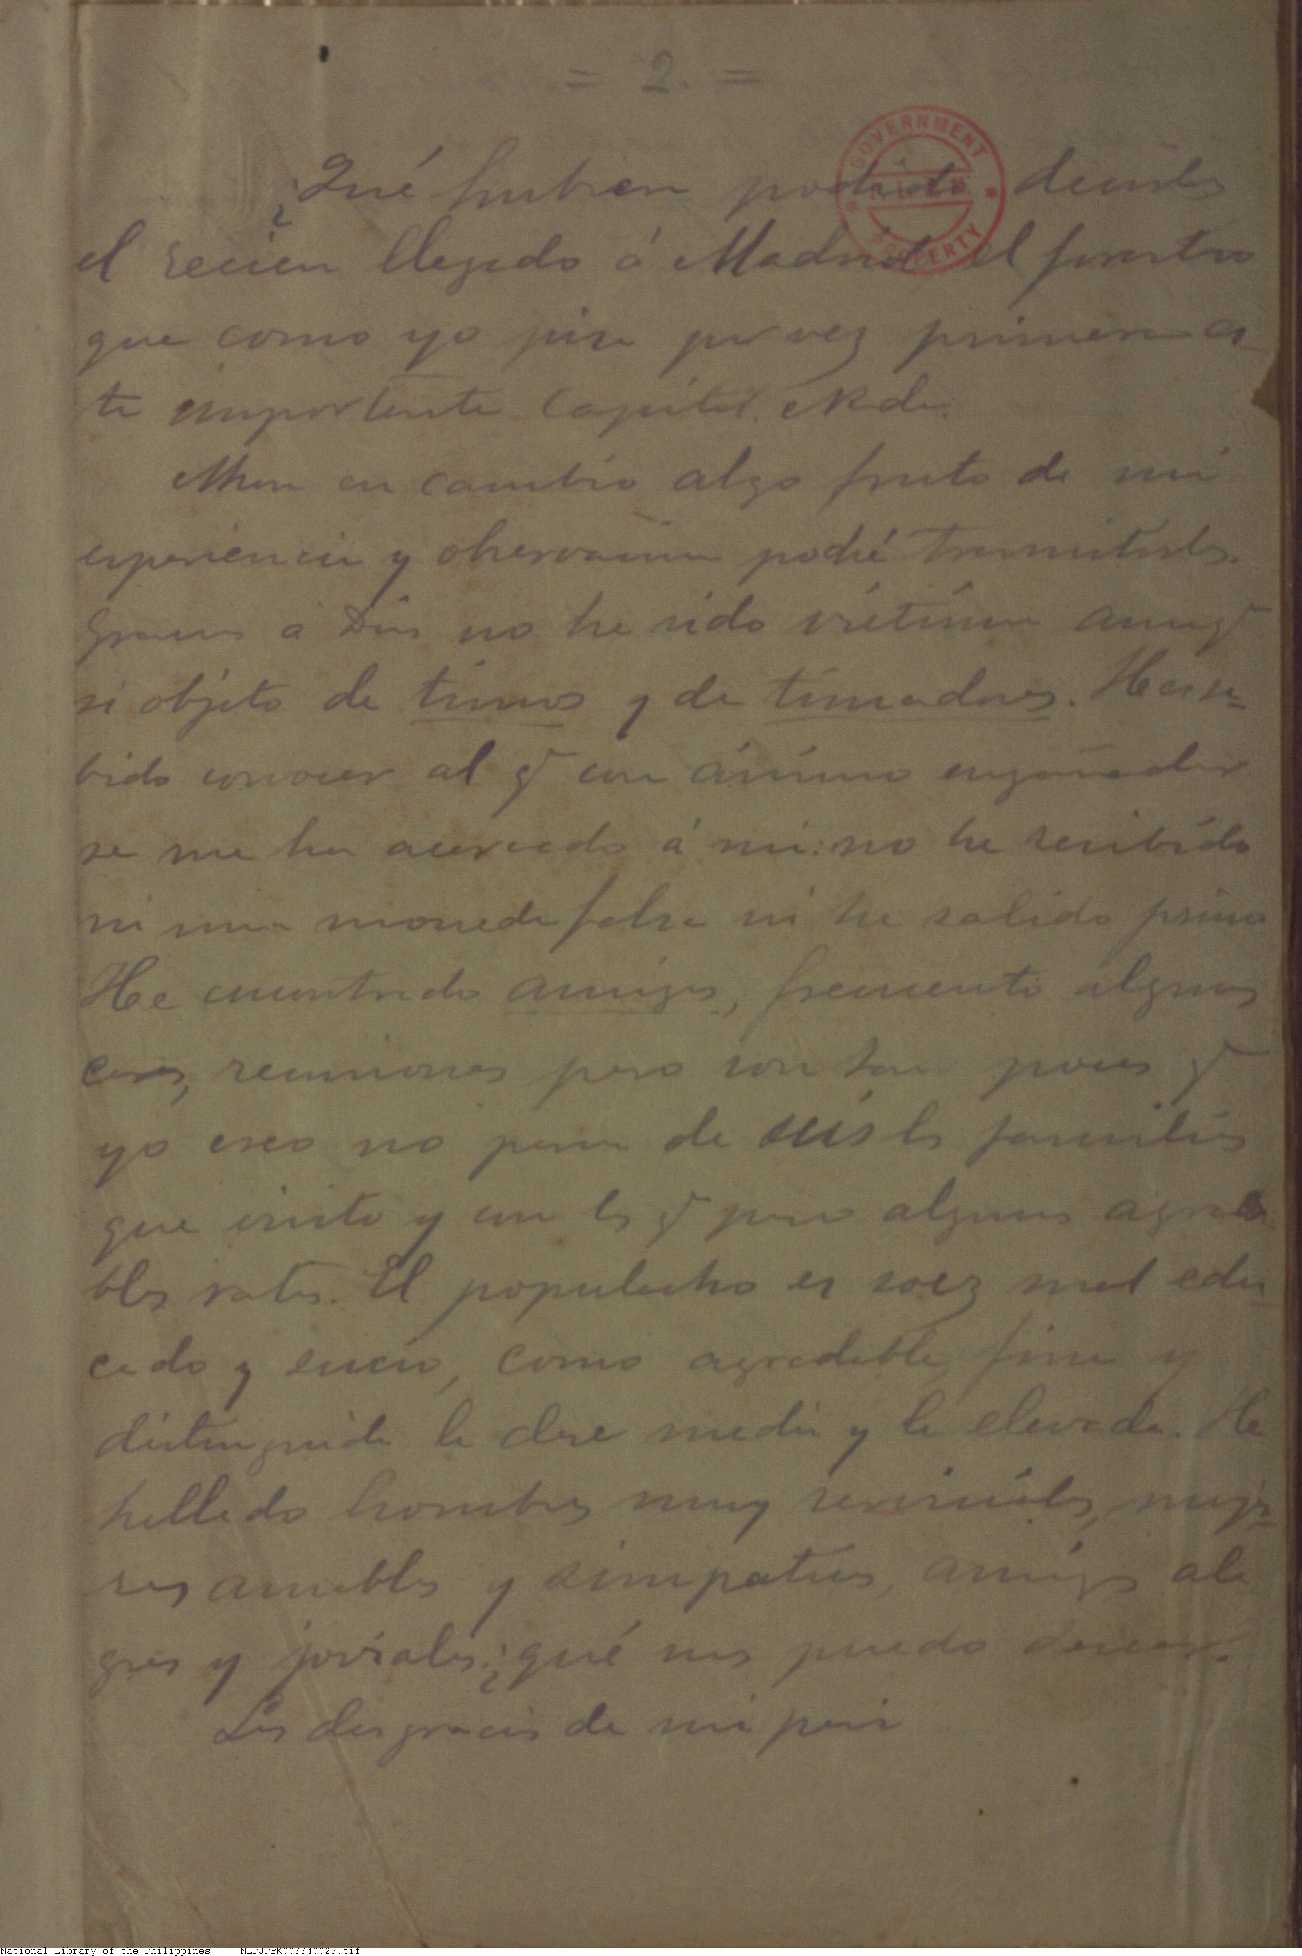 = 2. =
GOVERNMENT
PROPERTY
¿Qué hubiera podido decirles
el recien llegado á Madrid el forastero
que como yo pisa por vez primera es-
ta importante capital. Nada.
Ahora en cambio algo fruto de mi
esperiencia y observacion podré transmitirles.
Gracias á Dios no he sido víctima aunq.
si objeto de timos y de timadores. He sa-
bido conocer al q. con ánimo engañador
se me ha acercado á mi: no he recibido
ni una moneda falsa ni he salido primo
He encontrado amigos, frecuento algunas
casas, reuniones pero son tan pocas q.
yo creo no pasan de seis las familias
que visito y con las q. paso algunos agrada
bles ratos. El populacho es soez mal edu-
cado y sucio, como agradable, fina y
distinguida la clase media y la elevada. He
hallado hombres muy serviciales, muge-
res amables y simpaticas, amigos ale
gres y joviales; ¿qué mas puedo desear.
Las desgracias de mi pais
National Library of the Philippines